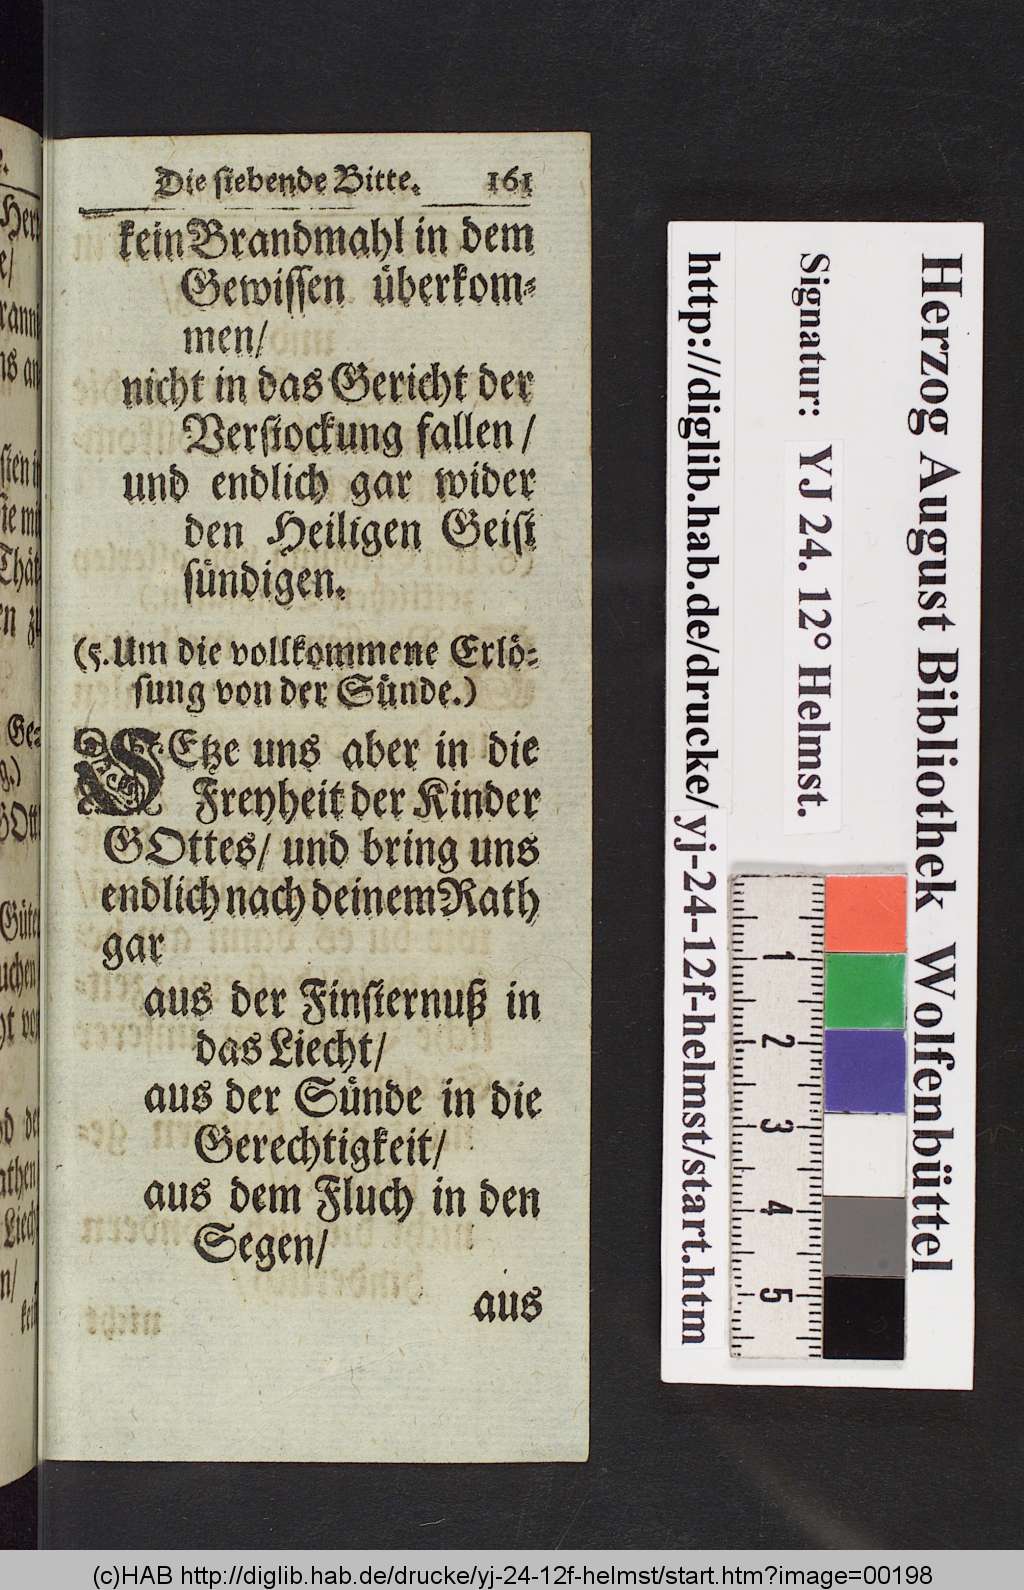 Die siebende Bitte. 161
kein Brandmahl in dem
Gewissen überkom-
men/
nicht in das Gericht der
Verstockung fallen/
und endlich gar wider
den Heiligen Geist
sündigen.
(5. Um die vollkommene Erlö-
sung von der Sünde.)
SEtze uns aber in die
Freyheit der Kinder
GOttes/ und bring uns
endlich nach deinem Rath
gar
aus der Finsternuß in
das Liecht/
aus der Sünde in die
Gerechtigkeit/
aus dem Fluch in den
Segen/
aus
Herzog August Bibliothek Wolfenbüttel
Signatur: YJ 24. 12° Helmst.
http://diglib.hab.de/drucke/yj-24-12f-helmst/start.htm
1
2
3
4
5
(c)HAB http://diglib.hab.de/drucke/yj-24-12f-helmst/start.htm?image=00198